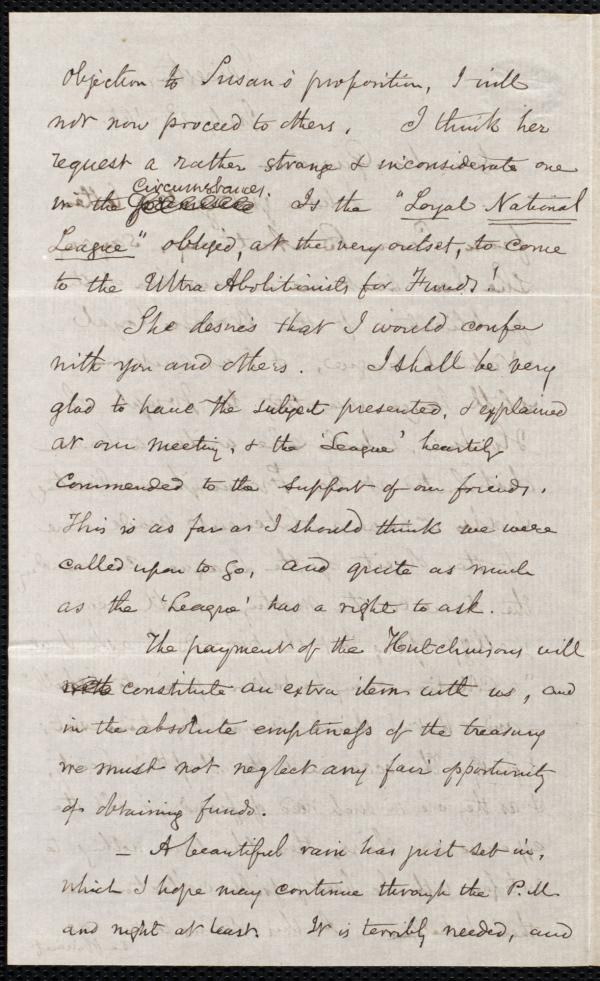 objection to Susan's proposition, I will
not now proceed to others. I think her
request a rather strange & inconsiderate one
circumstances.
in the Is the "Loyal National
League" obliged, at the very outset, to come
to the Ultra Abolitionists for Funds!
She desires that I would confer
with you and others. I shall be very
glad to have the subject presented, & explained
at our meeting, & the 'League' heartily
commended to the support of our friends.
This is as far as I should think we were
called upon to go, and quite as much
as the 'League' has a right to ask.
The payment of the Hutchinsons will
constitute an extra item with us, and
in the absolute emptiness of the treasury
we must not neglect any fair opportunity
of obtaining funds.
— A beautiful rain has just set in,
which I hope may continue through the P.M.
and night at least. It is terribly needed, and